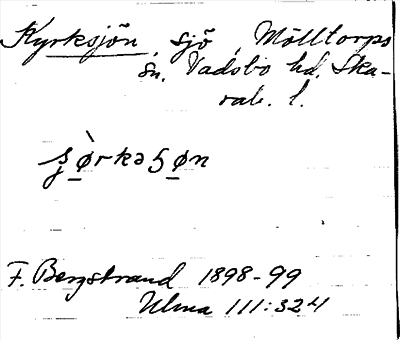 Kyrksjön, sjö, Mölltorps
sn. Vadsbo hd. Ska-
rab. l.
ʂø̀rkəʂøn
F. Bergstrand 1898-99
Ulma 111:324